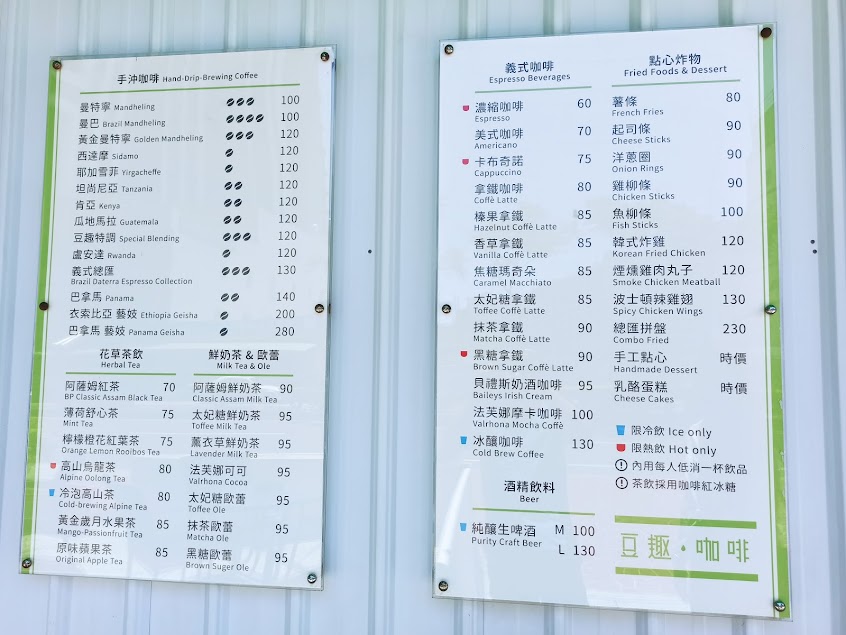 手沖咖啡 Hand-Drip-Brewing Coffee
曼特寧 Mandheling 100
曼巴 Brazil Mandheling 100
黃金曼特寧 Golden Mandheling 120
西達摩 Sidamo 120
耶加雪菲 Yirgacheffe 120
坦尚尼亞 Tanzania 120
肯亞 Kenya 120
瓜地馬拉 Guatemala 120
豆趣特調 Special Blending 120
盧安達 Rwanda 120
義式總匯 130
Brazil Daterra Espresso Collection
巴拿馬 Panama 140
衣索比亞 藝妓 Ethiopia Geisha 200
巴拿馬 藝妓 Panama Geisha 280
花草茶飲
Herbal Tea
阿薩姆紅茶 70
BP Classic Assam Black Tea
薄荷舒心茶 75
Mint Tea
檸檬橙花紅葉茶 75
Orange Lemon Rooibos Tea
高山烏龍茶 80
Alpine Oolong Tea
冷泡高山茶 80
Cold-brewing Alpine Tea
黃金歲月水果茶 85
Mango-Passionfruit Tea
原味蘋果茶 85
Original Apple Tea
鮮奶茶 & 歐蕾
Milk Tea & Ole
阿薩姆鮮奶茶 90
Classic Assam Milk Tea
太妃糖鮮奶茶 95
Toffee Milk Tea
薰衣草鮮奶茶 95
Lavender Milk Tea
法芙娜可可 95
Valrhona Cocoa
太妃糖歐蕾 95
Toffee Ole
抹茶歐蕾 95
Matcha Ole
黑糖歐蕾 95
Brown Suger Ole
義式咖啡
Espresso Beverages
濃縮咖啡 60
Espresso
美式咖啡 70
Americano
卡布奇諾 75
Cappuccino
拿鐵咖啡 80
Coffè Latte
榛果拿鐵 85
Hazelnut Coffè Latte
香草拿鐵 85
Vanilla Coffè Latte
焦糖瑪奇朵 85
Caramel Macchiato
太妃糖拿鐵 85
Toffee Coffè Latte
抹茶拿鐵 90
Matcha Coffè Latte
黑糖拿鐵 90
Brown Sugar Coffè Latte
貝禮斯奶酒咖啡 95
Baileys Irish Cream
法芙娜摩卡咖啡 100
Valrhona Mocha Coffè
冰釀咖啡 130
Cold Brew Coffee
酒精飲料
Beer
純釀生啤酒 M 100
Purity Craft Beer L 130
點心炸物
Fried Foods & Dessert
薯條 80
French Fries
起司條 90
Cheese Sticks
洋蔥圈 90
Onion Rings
雞柳條 90
Chicken Sticks
魚柳條 100
Fish Sticks
韓式炸雞 120
Korean Fried Chicken
煙燻雞肉丸子 120
Smoke Chicken Meatball
波士頓辣雞翅 130
Spicy Chicken Wings
總匯拼盤 230
Combo Fried
手工點心 時價
Handmade Dessert
乳酪蛋糕 時價
Cheese Cakes
限冷飲 Ice only
限熱飲 Hot only
內用每人低消一杯飲品
茶飲採用咖啡紅冰糖
豆趣・咖啡